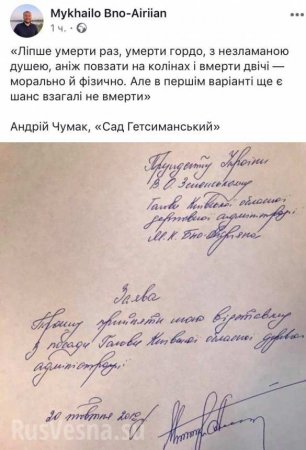 Mykhailo Bno-Airiian
1 ч.
«Ліпше умерти раз, умерти гордо, з незламаною
душею, аніж повзати на колінах і вмерти двічі —
морально й фізично. Але в першім варіанті ще є
шанс взагалі не вмерти»
Андрій Чумак, «Сад Гетсиманський»
Президенту України
В.О. Зеленському
Голови Київської обласної
державної адміністрації
М.К. Бно-Айріяна
Заява
Прошу прийняти мою відставку
з посади Голови Київської обласної державної
адміністрації
20 жовтня
RusVesna.su